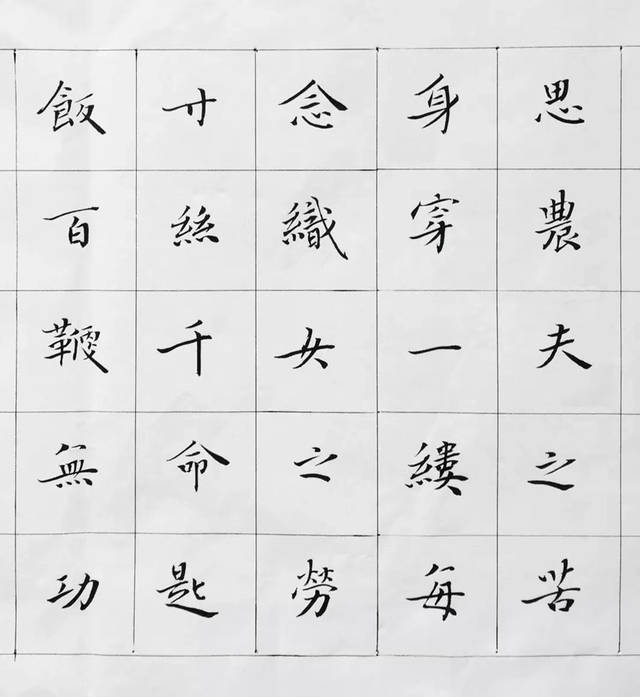 思農夫之苦
身穿一縷每
念織女之勞
寸絲千命匙
飯百鞭無功